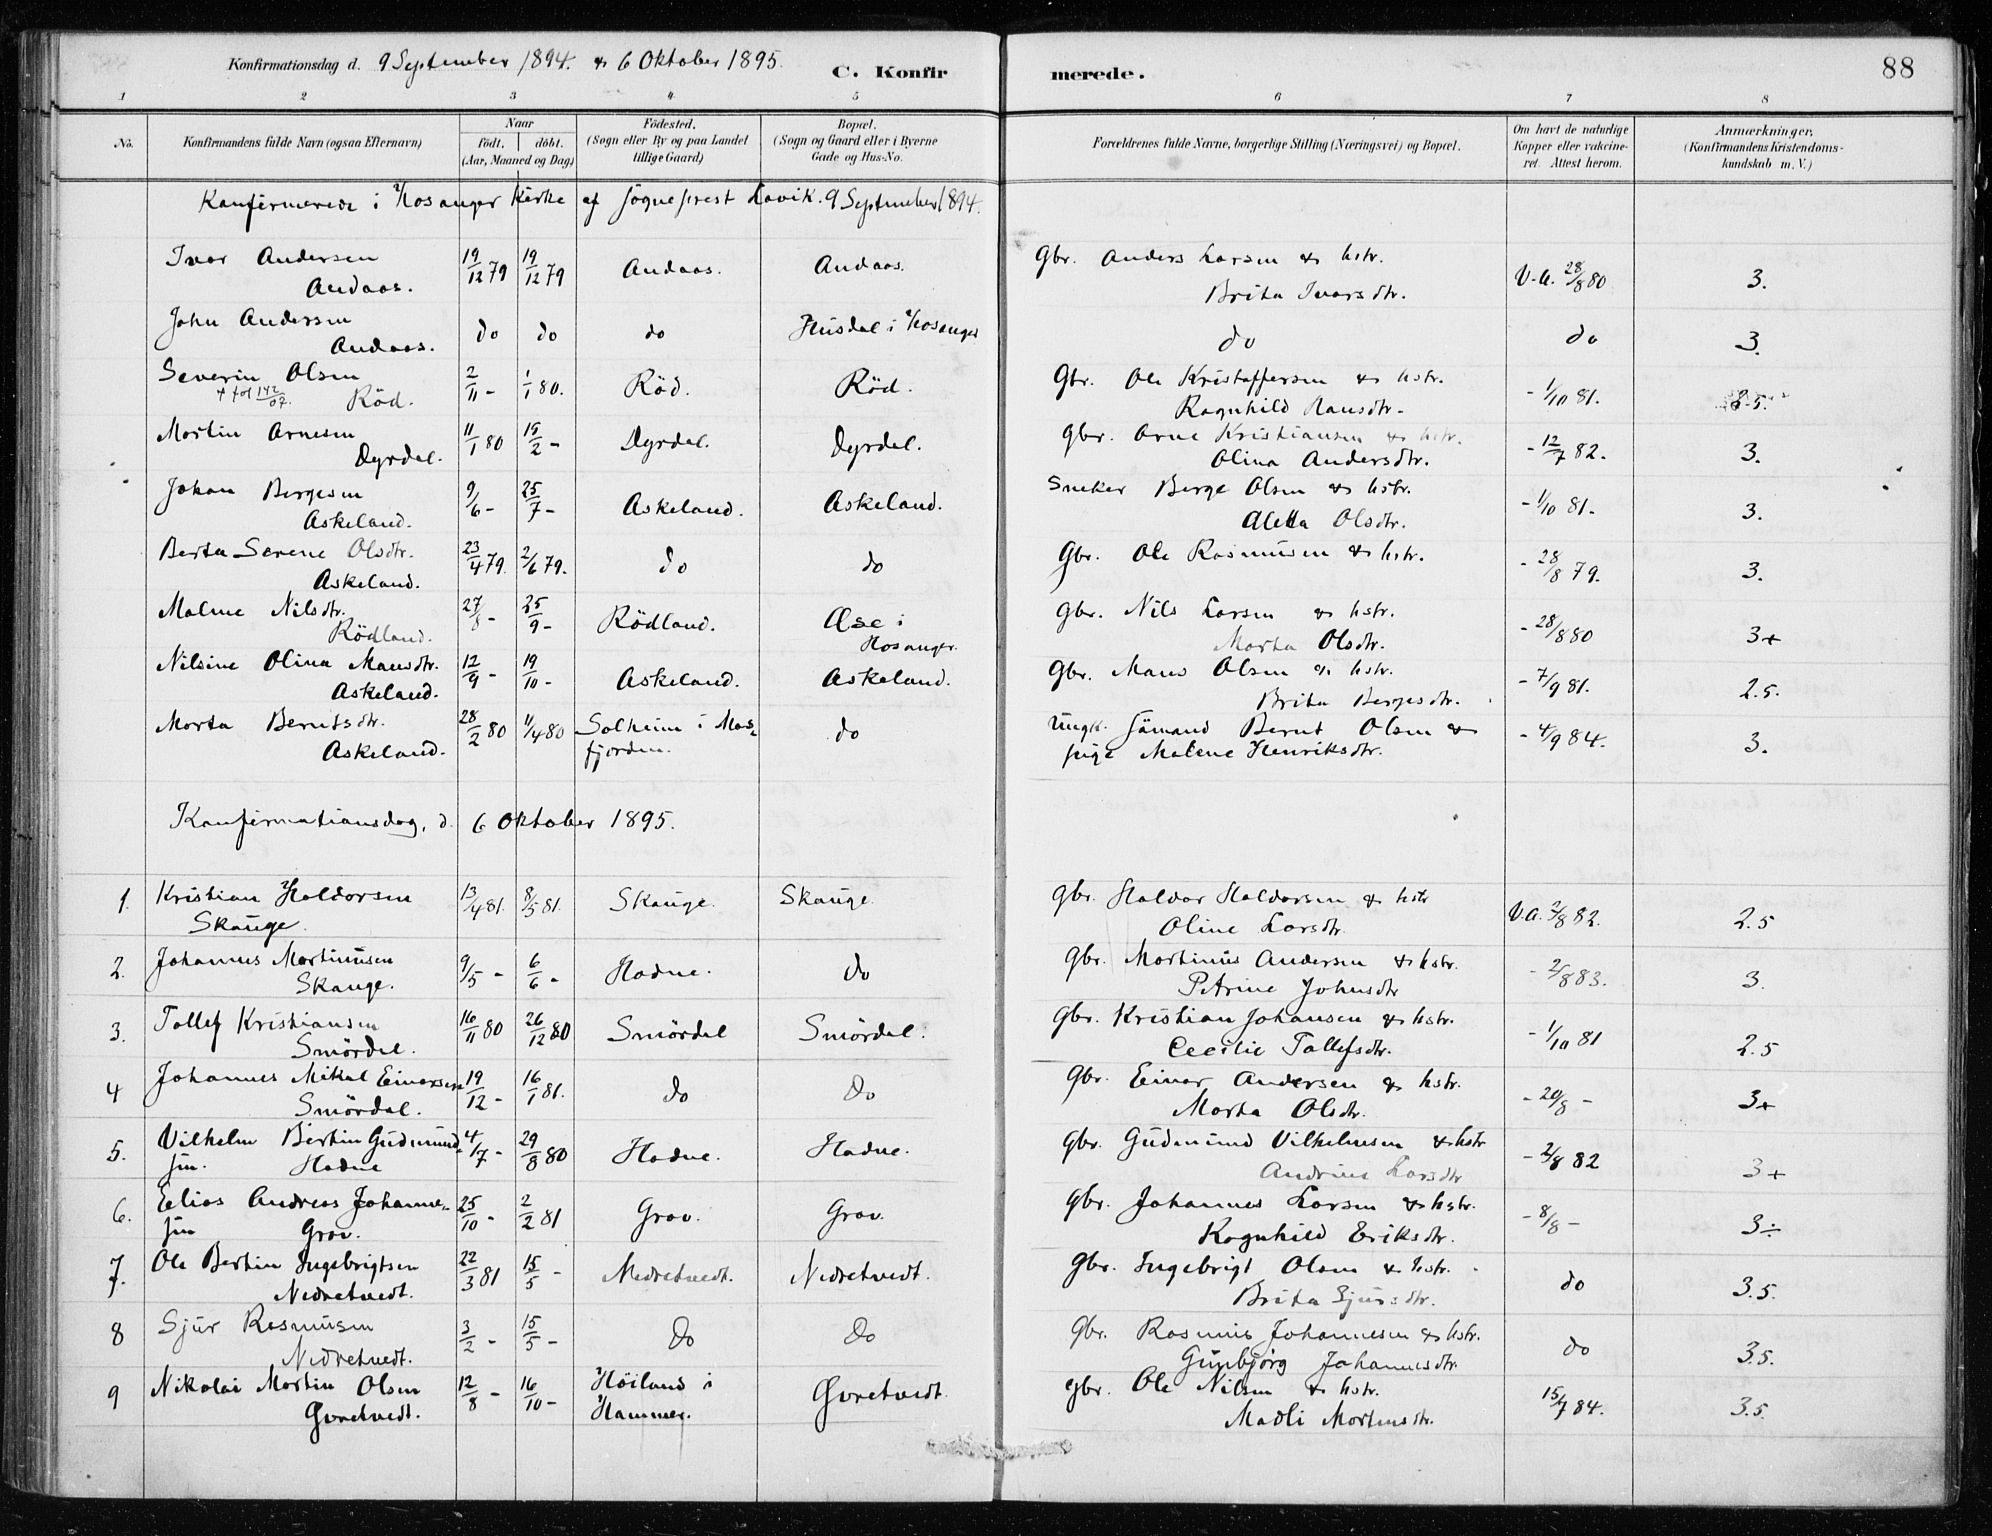 Konfirmationsdag d. 9 September 1894. & 6 Oktober 1895.
C. Konfirmerede.
88
1 2 3 4 5 6 7 8
No. Konfirmandens fulde Navn (ogsaa Efternavn) Naar født. døbt. (Aar, Maaned og Dag) Fødested. (Sogn eller By og paa Landet tillige Gaard) Bopæl. (Sogn og Gaard eller i Byerne Gade og Hus-No. Forældrenes fulde Navne, borgerlige Stilling (Næringsvei) og Bopæl. Om havt de naturlige Kopper eller vaccineret. Attest herom. Anmærkninger, (Konfirmandens Kristendomskundskab m. V.)
Konfirmerede i Hosanger Kirke af sogneprest Lavik. 9 September 1894.
Ivar Andersen 19/12 79 19/12 79 Andaas. Andaas. Gbr. Anders Larsen & hstr. V.A. 28/8 80 3.
Andaas. Brita Ivarsdtr.
John Andersen do do do Husdal i Hosanger do do 3.
Andaas.
Severin Olsen 2/11 - 1/1 80. Röd. Röd. Gbr. Ole Kristoffersen & hstr. - 1/10 81. 2.5.
Röd. Ragnhild Hansdtr.
Martin Arnesen 11/1 80 15/2 - Dyrdal. Dyrdal. Gbr. Arne Kristiansen & hstr. - 12/7 82. 3.
Dyrdal. Olina Andersdtr.
Johan Bergesen 9/6 - 25/7 - Askeland. Askeland. Sneker Berge Olsen & hstr. - 1/10 81. 3.
Askeland. Aletta Olsdtr.
Berta Serene Olsdtr. 23/4 79. 2/6 79. do do Gbr. Ole Rasmusen & hstr. - 28/8 79. 3.
Askeland.
Malene Nilsdtr. 27/8 - 25/9 - Rödland. Æse i Gbr. Nils Larsen & hstr. - 28/8 80 3+
Rödland. Hosanger. Marta Olsdtr.
Nilsine Olina Mansdtr. 12/9 - 19/10 - Askeland. Askeland. Gbr. Mans Olsen & hstr. - 7/9 81. 2.5.
Askeland. Brita Bergesdtr.
Marta Berntsdtr. 28/2 80 11/4 80 Solheim i Mas- do Ungk. Sömand Bernt Olsen & - 4/9 84. 3.
Askeland. fjorden. pige Malene Henriksdtr.
Konfirmationsdag, d. 6 Oktober 1895.
1. Kristian Haldorsen 13/4 81. 8/5 81. Skauge. Skauge. Gbr. Haldor Haldorsen & hstr V.A. 2/8 82. 2.5
Skauge. Oline Larsdtr.
2. Johannes Martinusen 9/5 - 6/6 - Hadne. do Gbr. Martinus Andersen & hstr. - 2/8 83. 3.
Skauge. Petrine Johnsdtr
3. Tollef Kristiansen 16/11 80 26/12 80 Smördal Smördal. Gbr. Kristian Johansen & hstr. - 1/10 81 2.5
Smördal. Cecilie Tollefsdtr.
4 Johannes Mikal Einarsen 19/12 - 16/1 81. do do Gbr. Einar Andersen & hstr. - 20/8 - 3+
Smördal. Marta Olsdtr.
5. Vilhelm Bertin Gudmund- 4/7 - 29/8 80 Hadne. Hadne. Gbr. Gudmund Vilhelmsen & hstr - 2/8 82 3+
sen. Hadne Andrine Larsdtr
6. Elias Andreas Johanne- 25/10 - 2/2 81 Grov. Grov. Gbr. Johannes Larsen & hstr. - 8/8 - 3÷
sen Grov. Ragnhild Eriksdtr.
7. Ole Bertin Ingebrigtsen 22/3 81 15/5 - Nedretvedt. Nedretvedt. Gbr. Ingebrigt Olsen & hstr. do 3.5.
Nedretvedt. Brita Sjursdtr.
8 Sjur Rasmusen 3/2 - 15/5 - do do Gbr. Rasmus Johannesen & hstr. do 3.5.
Nedretvedt. Gunbjörg Johannesdtr.
9 Nikolai Martin Olsen 12/8 - 16/10 - Höiland i Övretvedt. Gbr. Ole Nilsen & hstr. 15/7 84. 3.5.
Övretvedt. Hammer. Madli Mortensdtr.